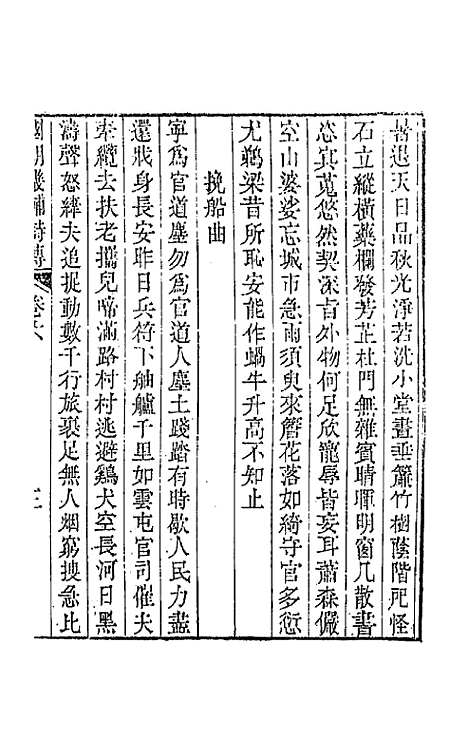 暑退天日晶秋光淨若洗小堂晝垂簾竹樹蔭階戺怪
石立縱橫藥欄發芳芷杜門無雜賓晴暉明窗几散書
恣冥蒐悠然契深旨外物何足欣寵辱皆妄耳蕭森儼
空山婆娑忘城市急雨須臾來簷花落如綺守官多愆
尤鵜梁昔所恥安能作蝸牛升高不知止
挽船曲
寧為官道塵勿為官道人塵土踐踏有時歇人民力盡
還戕身長安昨日兵符下舳艫千里如雲屯官司催夫
牽纜去扶老攜兒啼滿路村村逃避鷄犬空長河日黑
濤聲怒縴夫追捉動數千行旅裹足無人烟窮搜急比
國朝畿輔詩傳 卷六